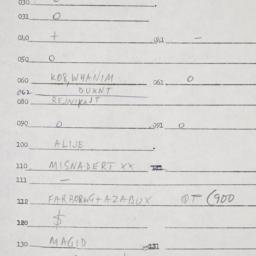 030
031 0
040 + 041 -
050 0
060 KOB, WHANIM 061 0
062 DUKNT
080 REJNIKANT
090 0 091 0
100 ALIJE
110 MISNADERT XX
111 -
112 FARBORNG + AZADUX QT (900
120 $
130 MAGID 131